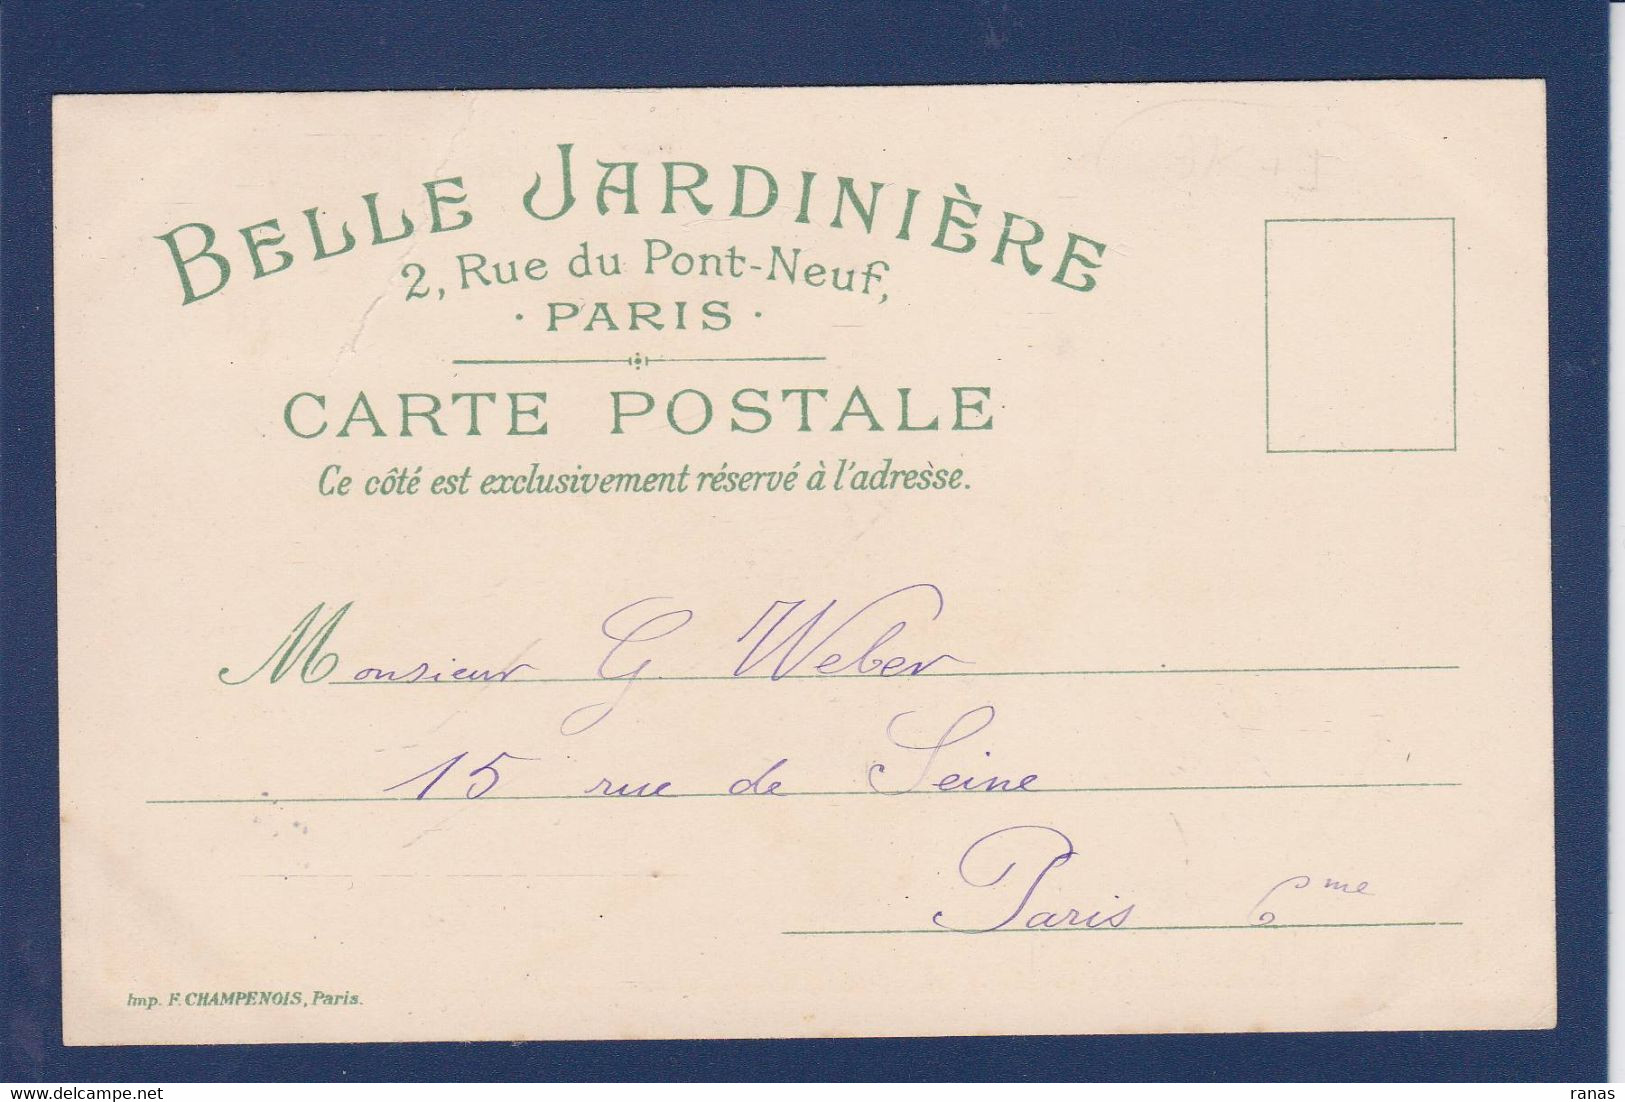 BELLE JARDINIÈRE
2, Rue du Pont-Neuf,
· PARIS ·
CARTE POSTALE
Ce côté est exclusivement réservé à l'adresse.
Monsieur G. Weber
15 rue de Seine
Paris 6me
Imp. F. CHAMPENOIS, Paris.
ranas